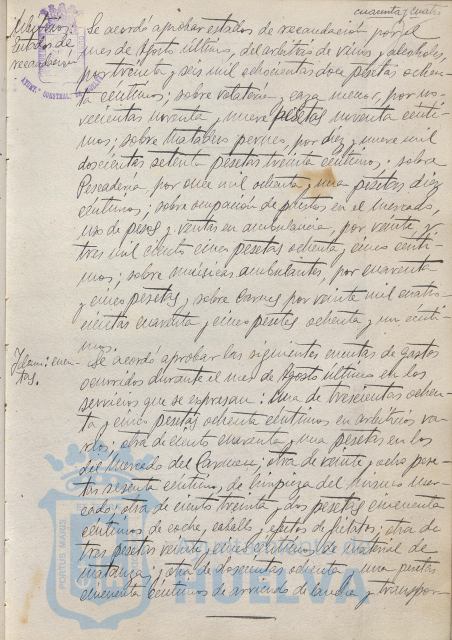 cuarenta y cuatro
Arbitrios:
Estados de
recaudación
Se acordó aprobar estados de recaudación por el
mes de Agosto último, del arbitrio de vinos y alcoholes,
por treinta y seis mil ochocientas doce pesetas ochen-
ta centimos; sobre volatería y caza menor, por no-
vecientas noventa y nueve pesetas noventa centi-
mos; sobre Matadero, por diez y nueve mil
doscientas setenta pesetas treinta centimos; sobre
Pescadería, por once mil ochenta y una pesetas diez
centimos; sobre ocupación de puestos en el mercado,
uso de pesos y ventas en ambulancia, por veinte y
tres mil ciento cinco pesetas ochenta y cinco centi-
mos; sobre músicas ambulantes, por cuarenta
y cinco pesetas, sobre Carnes por veinte mil cuatro-
cientas cuarenta y cinco pesetas ochenta y un centi-
mos.
Idem: cuen-
tas.
Se acordó aprobar las siguientes cuentas de gastos
ocurridos durante el mes de Agosto último en los
servicios que se expresan: Una de trescientas ochen-
ta y cinco pesetas ochenta centimos en arbitrios va-
rios; otra de ciento cuarenta y una pesetas en los
del Mercado del Carmen; otra de veinte y ocho pese-
tas sesenta centimos, de limpieza del mismo mer-
cado; otra de ciento treinta y dos pesetas cincuenta
centimos de coche, caballo y efectos de fielatos; otra de
tres pesetas veinte y cinco centimos de material de
matanza; otra de doscientas ochenta y una pesetas
cincuenta centimos de arriendo de lancha y transpor-
PORTUS MARIS
Ayuntamiento de
HUELVA